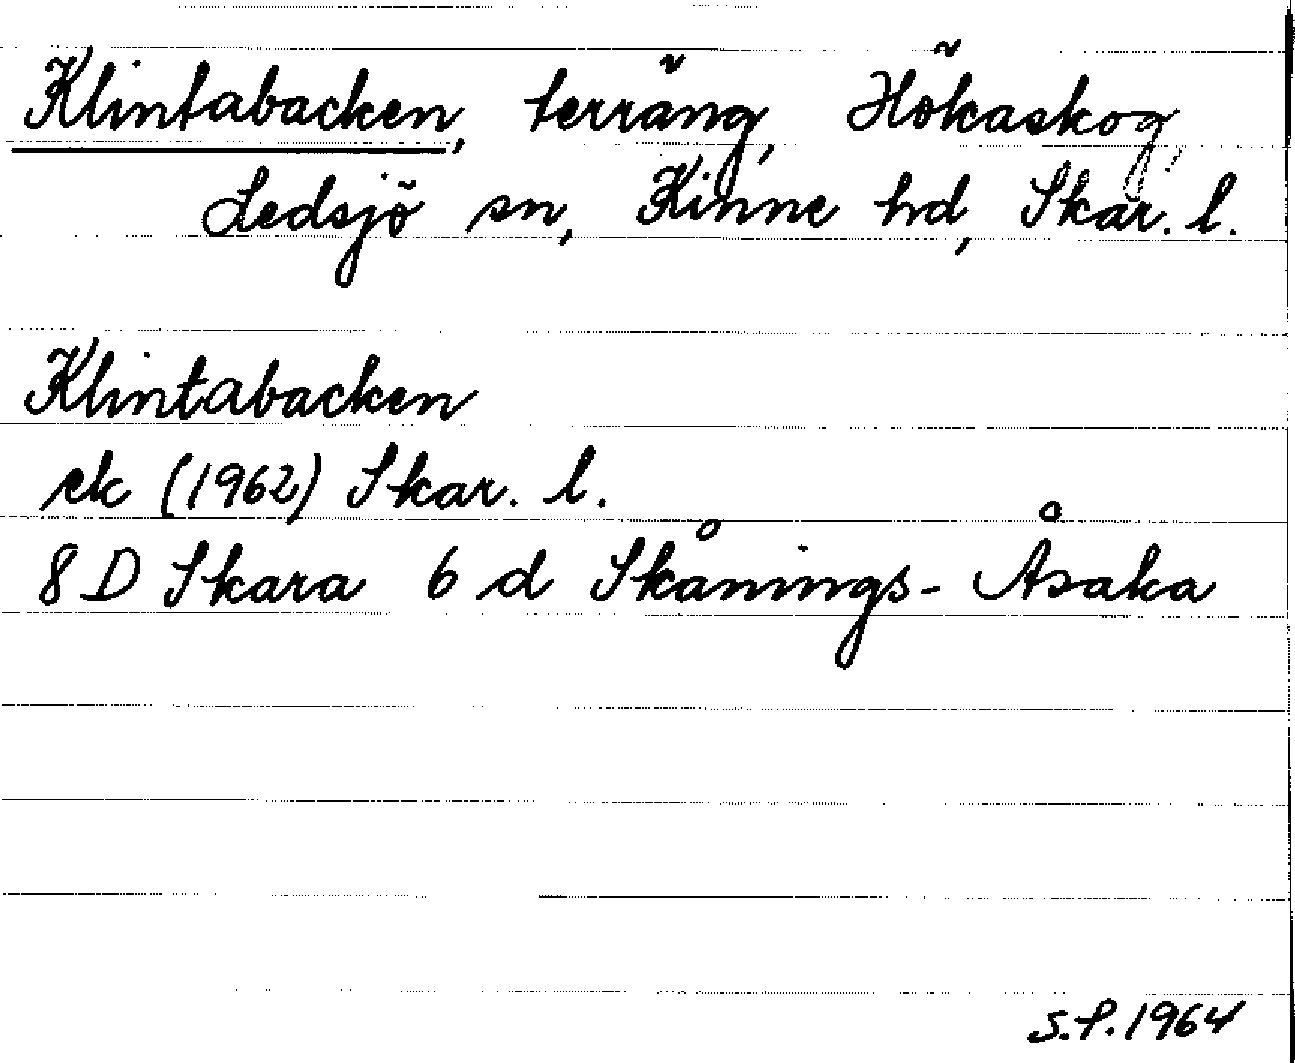 Klintabacken, terräng, Hökaskog,
Ledsjö sn, Kinne hd, Skar. l.
Klintabacken
ek (1962) Skar. l.
8 D Skara 6 d Skånings-Åsaka
S.P. 1964